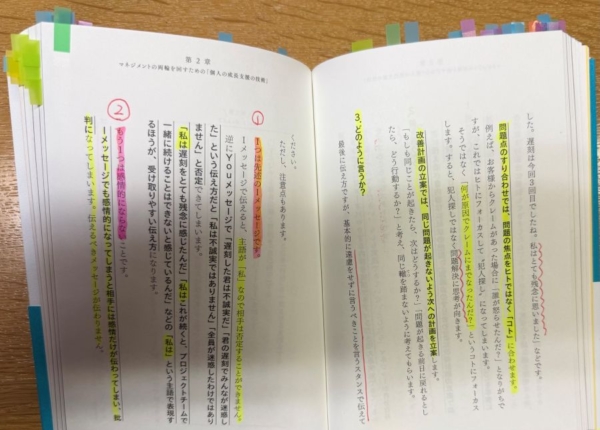 した。遅刻は今回3回目でしたね。私はとても残念に思いました」などです。
問題点のすり合わせでは、問題の焦点をヒトではなく「コト」に合わせます。
例えば、お客様からクレームがあった場合に「誰が怒らせたんだ？」となりがちで
すが、これではヒトにフォーカスして“犯人探し”になってしまいます。
そうではなく「何が原因でクレームにまでなったんだ？」というコトにフォーカス
します。すると、犯人探しではなく問題解決に思考が向きます。
改善計画の立案では、同じ問題が起きないよう次への計画を立案します。
「もしも同じことが起きたら、次はどうするか？」「問題が起きる前日に戻れるとし
たら、どう行動するか？」と考え、同じ轍を踏まないように考えてもらいます。
3、どのように言うか？
最後に伝え方ですが、基本的に遠慮をせずに言うべきことを言うスタンスで伝えて
第2章
マネジメントの両輪を回すための「個人の成長支援の技術」
ください。
ただし、注意点もあります。
①
1つは先述のIメッセージです。
Iメッセージで伝えると、主語が「私」なので相手は否定することができません。
逆にYouメッセージで「遅刻した君は不誠実だ」「君の遅刻でみんなが迷惑し
た」という伝え方だと「私は不誠実ではありません」「全員が迷惑したわけではあり
ません」と否定できてしまいます。
「私は遅刻をとても残念に感じたんだ」「私はこれが続くと、プロジェクトチームで
一緒に続けることはできないと感じているんだ」などの「私は」という主語で表現す
るほうが、受け取りやすい伝え方になります。
②
もう1つは感情的にならないことです。
Iメッセージでも感情的になってしまうと相手には感情だけが伝わってしまい、批
判になってしまいます。伝えるべきメッセージが伝わりません。